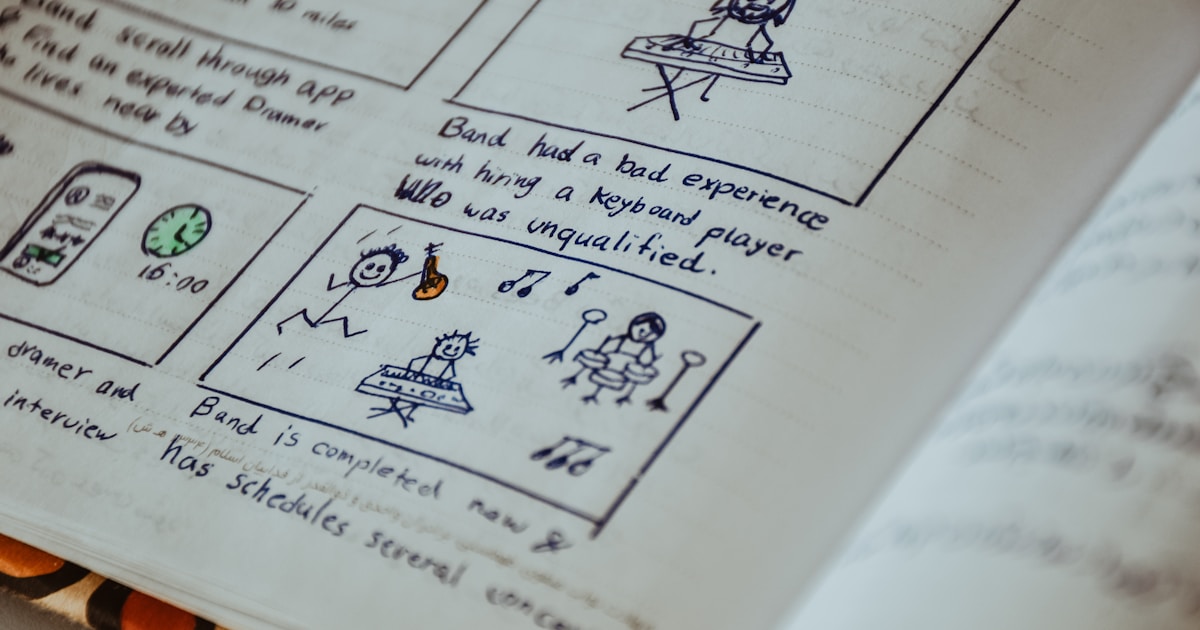 miles
Band scroll through app
Find an experted Dramer
lives near by
Band had a bad experience
with hiring a Keyboard player
who was unqualified.
16:00
dramer and
interview
Band is completed now &
has schedules several